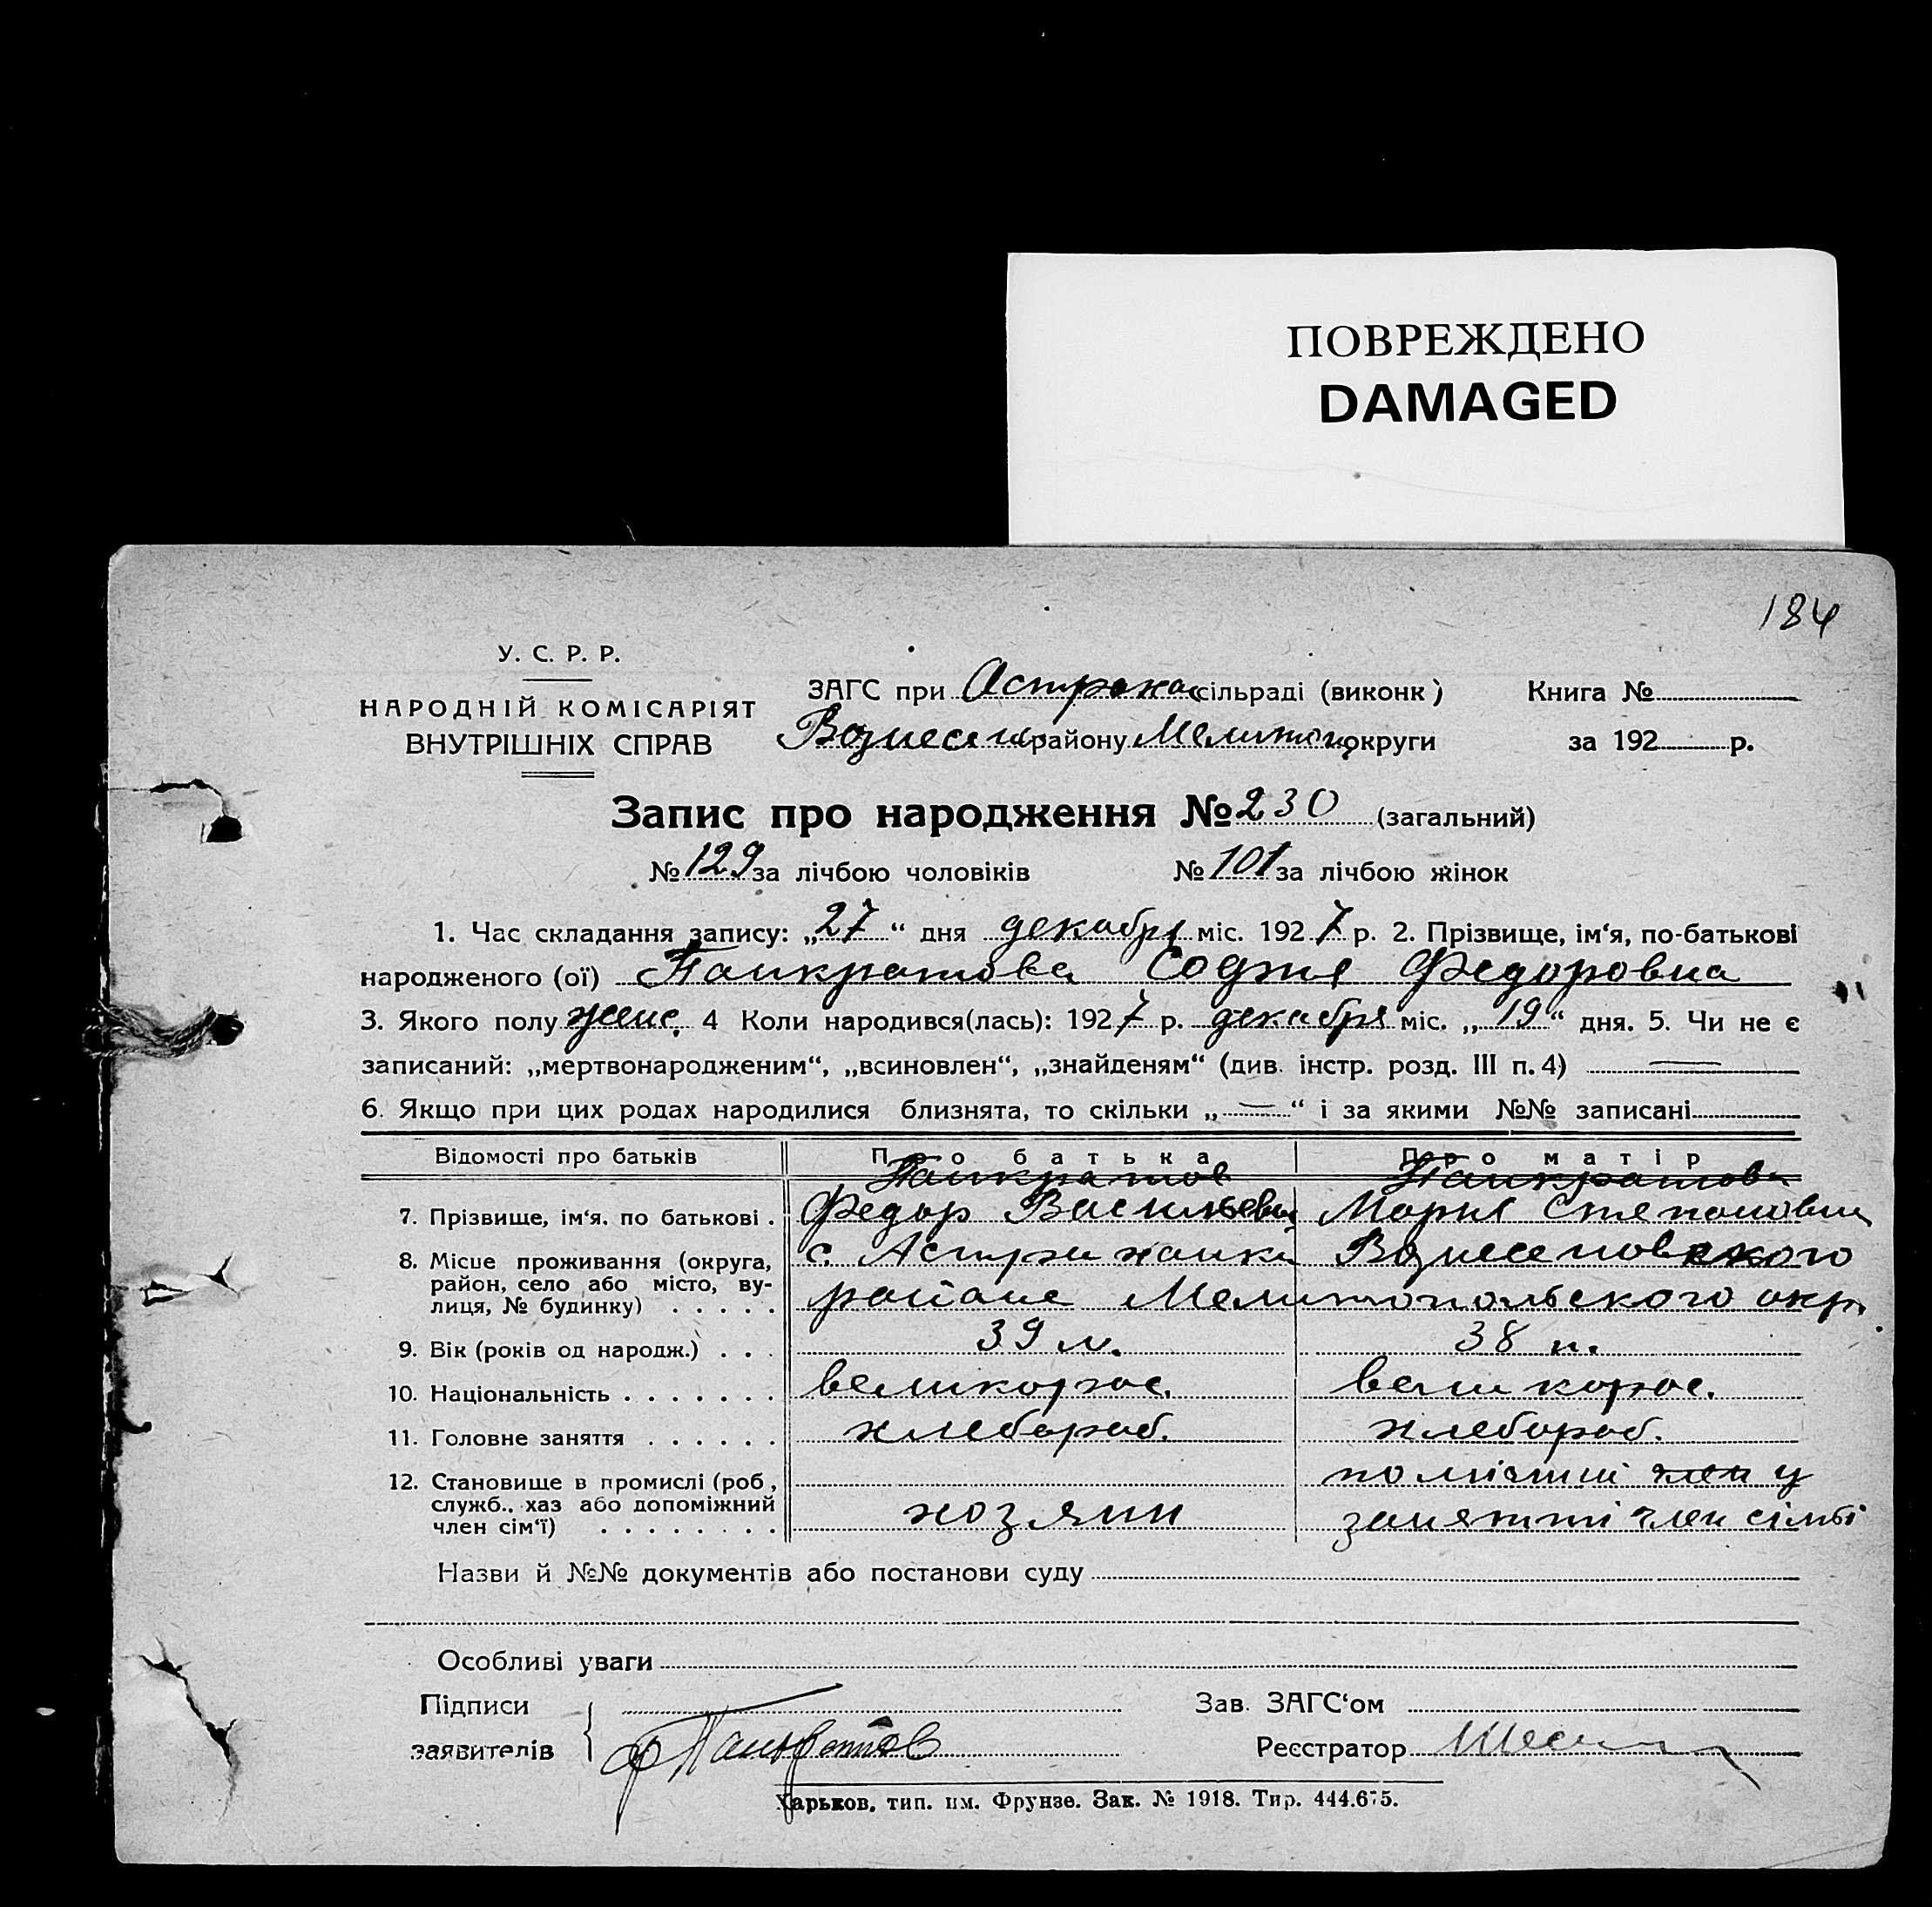 ПОВРЕЖДЕНО
DAMAGED
184
У. С. Р. Р.
НАРОДНІЙ КОМІСАРІЯТ
ВНУТРІШНІХ СПРАВ
ЗАГС при Астраха сільраді (виконк)
Вознесен району Мелитоп округи
Книга №
за 192 р.
Запис про народження № 230 (загальний)
№ 129 за лічбою чоловіків № 101 за лічбою жінок
1. Час складання запису: „27“ дня декабря міс. 1927 р. 2. Прізвище, ім‘я, по-батькові
народженого (ої) Панкратова София Федоровна
3. Якого полу женс. 4 Коли народився(лась): 1927 р. декабря міс. „19“ дня. 5. Чи не є
записаний: „мертвонародженим“, „всиновлен“, „знайденям“ (див. інстр. розд. III п. 4) —
6. Якщо при цих родах народилися близнята, то скільки „—“ і за якими №№ записані
Відомості про батьків Про батька Про матір
Панкратов Панкратова
7. Прізвище, ім‘я. по батькові . Федор Васильевич Мария Степановна
8. Місце проживання (округа, район, село або місто, ву-
лиця, № будинку) . . . . . с. Астраханки Вознесеновского
района Мелитопольского окр.
9. Вік (років од народж.) . . . 39 л. 38 л.
10. Національність . . . . . . . великорос. великорос.
11. Головне заняття . . . . . . хлебороб. хлебороб.
12. Становище в промислі (роб., служб., хаз або допоміжний
член сім‘ї) . . . . . . . . хозяин помічний член у
занятті член сімьі
Назви й №№ документів або постанови суду
Особливі уваги
Підписи
заявителів
Ф Панкратов
Зав. ЗАГС‘ом
Реєстратор
Харьков, тип. им. Фрунзе. Зак. № 1918. Тир. 444.675.